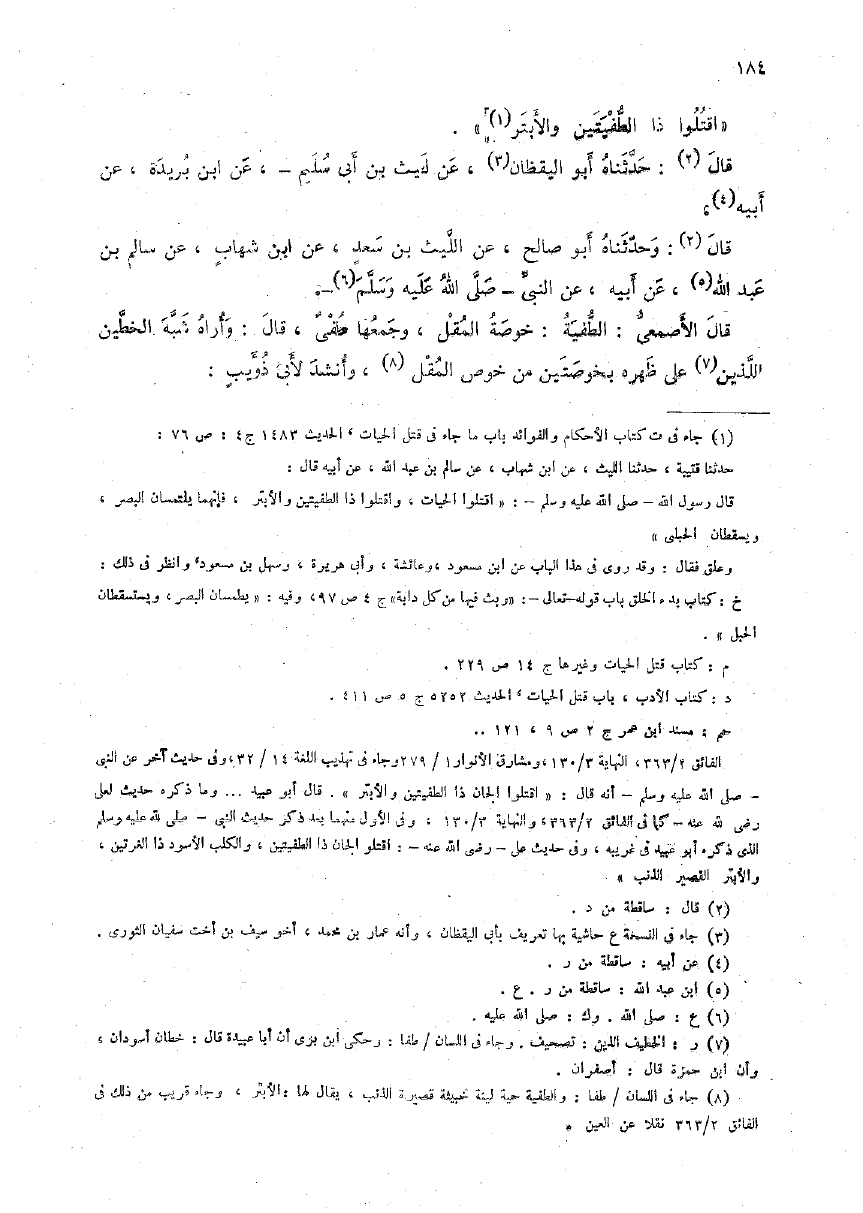 ١٨٤
« اقتُلُوا ذا الطُّفْيَتَين والأَبتَر(١) » .
قالَ (٢) : حَدَّثَناهُ أَبو اليقظان(٣) ، عَن لَيث بن أَبى سُلَيم – ، عَن ابن بُريدَة ، عن
أَبيه(٤) ،
قالَ (٢) : وَحدَّثَناهُ أَبو صالح ، عن اللَّيث بن سَعدٍ ، عن ابن شهابٍ ، عن سالم بن
عَبد الله(٥) ، عَن أَبيه ، عن النبىِّ – صَلَّى اللهُ عَلَيه وَسَلَّمَ(٦) – .
قالَ الأَصمعىُّ : الطُّفيَةُ : خوصَةُ المُقْل ، وجَمعُها طُفْىٌ ، قالَ : وَأُراهُ شَبَّهَ الخطَّين
اللَّذين(٧) على ظَهره بخوصَتَين من خوص المُقْل (٨) ، وأَنشدَ لأَبى ذُوَيبٍ :
(١) جاء فى ت كتاب الأحكام والفوائد باب ما جاء فى قتل الحيات ، الحديث ١٤٨٣ ج٤ : ص ٧٦ :
حدثنا قتيبة ، حدثنا الليث ، عن ابن شهاب ، عن سالم بن عبد الله ، عن أبيه قال :
قال رسول الله – صلى الله عليه وسلم – : « اقتلوا الحيات ، واقتلوا ذا الطفيتين والأبتر ، فإنهما يلتمسان البصر ،
ويسقطان الحبلى »
وعلق فقال : وقد روى فى هذا الباب عن ابن مسعود ، وعائشة ، وأبى هريرة ، وسهل بن مسعود ، وانظر فى ذلك :
خ : كتاب بدء الخلق باب قوله – تعالى – : «وبث فيها من كل دابة» ج ٤ ص ٩٧ ، وفيه : « يطمسان البصر ، ويستسقطان
الحبل » .
م : كتاب قتل الحيات وغيرها ج ١٤ ص ٢٢٩ .
د : كتاب الأدب ، باب قتل الحيات ، الحديث ٥٢٥٢ ج ٥ ص ٤١١ .
حم : مسند ابن عمر ج ٢ ص ٩ ، ١٢١ ..
الفائق ٣٦٣/٢ ، النهاية ١٣٠/٣ ، ومشارق الأنوار ١ / ٢٧٩ وجاء فى تهذيب اللغة ١٤ / ٣٢ ، وفى حديث آخر عن النبى
– صلى الله عليه وسلم – أنه قال : « اقتلوا الجان ذا الطفيتين والأبتر » . قال أبو عبيد ... وما ذكره حديث لعلى
رضى لله عنه – كما فى الفائق ٣٦٣/٢ ، والنهاية ١٣٠/٣ ، وفى الأول منهما بعد ذكر حديث النبى – صلى لله عليه وسلم
الذى ذكره أبو عبيد فى غريبه ، وفى حديث على – رضى الله عنه – : اقتلو الجان ذا الطفيتين ، والكلب الأسود ذا الغرتين ،
والأبتر القصير الذنب »
(٢) قال : ساقطة من د .
(٣) جاء فى النسخة ع حاشية بها تعريف بأبى اليقظان ، وأنه عمار بن محمد ، أخو سيف بن أخت سفيان الثورى .
(٤) عن أبيه : ساقطة من ر .
(٥) ابن عبد الله : ساقطة من ر . ع .
(٦) ع : صلى الله . وك : صلى الله عليه .
(٧) ر : الخطيف الذين : تصحيف . وجاء فى اللسان / طفا : وحكى ابن برى أن أبا عبيدة قال : خطان أسودان ،
وأن ابن حمزة قال : أصفران .
(٨) جاء فى اللسان / طفا : والطفية حية لينة خبيثة قصيرة الذنب ، يقال لها : الأبتر ، وجاء قريب من ذلك فى
الفائق ٣٦٣/٢ نقلا عن العين .